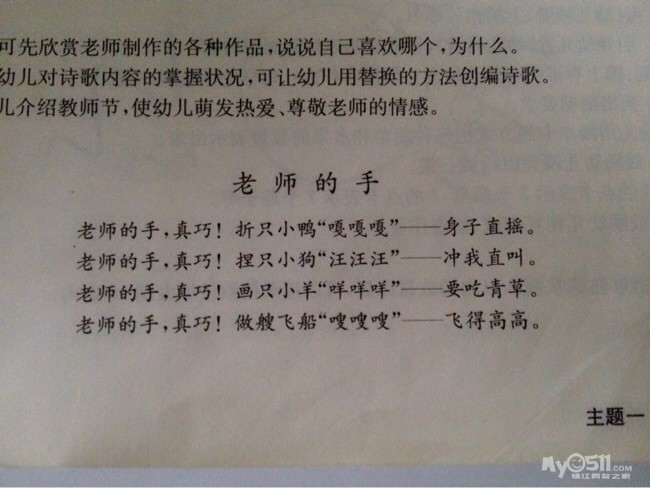 可先欣赏老师制作的各种作品，说说自己喜欢哪个，为什么。
幼儿对诗歌内容的掌握状况，可让幼儿用替换的方法创编诗歌。
儿介绍教师节，使幼儿萌发热爱、尊敬老师的情感。
老师的手
老师的手，真巧！折只小鸭“嘎嘎嘎”——身子直摇。
老师的手，真巧！捏只小狗“汪汪汪”——冲我直叫。
老师的手，真巧！画只小羊“咩咩咩”——要吃青草。
老师的手，真巧！做艘飞船“嗖嗖嗖”——飞得高高。
主题一
My0511.com
镇江网友之家